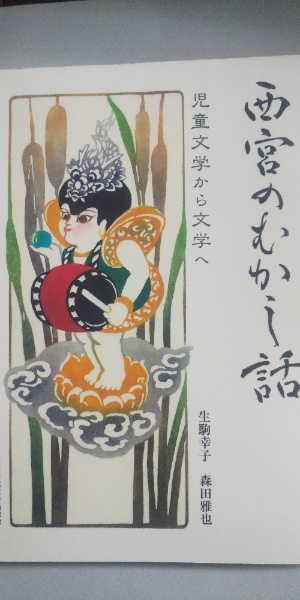 西宮のむかし話
児童文学から文学へ
生駒幸子　森田雅也